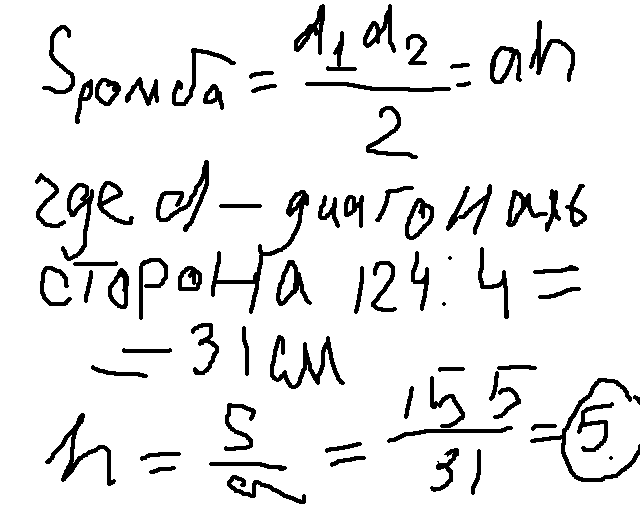 Sромба = d₁d₂/2 = ah
где d – диагональ
сторона 124:4 =
= 31 см
h = S/a = 155/31 = 5